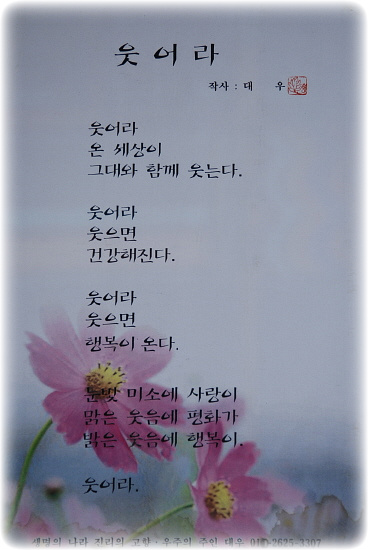 웃 어 라
작사 : 대 우
웃어라
온 세상이
그대와 함께 웃는다.
웃어라
웃으면
건강해진다.
웃어라
웃으면
행복이 온다.
눈빛 미소에 사랑이
맑은 웃음에 평화가
밝은 웃음에 행복이.
웃어라.
생명의 나라 진리의 고향 · 우주의 주인 대우 010-2625-3307